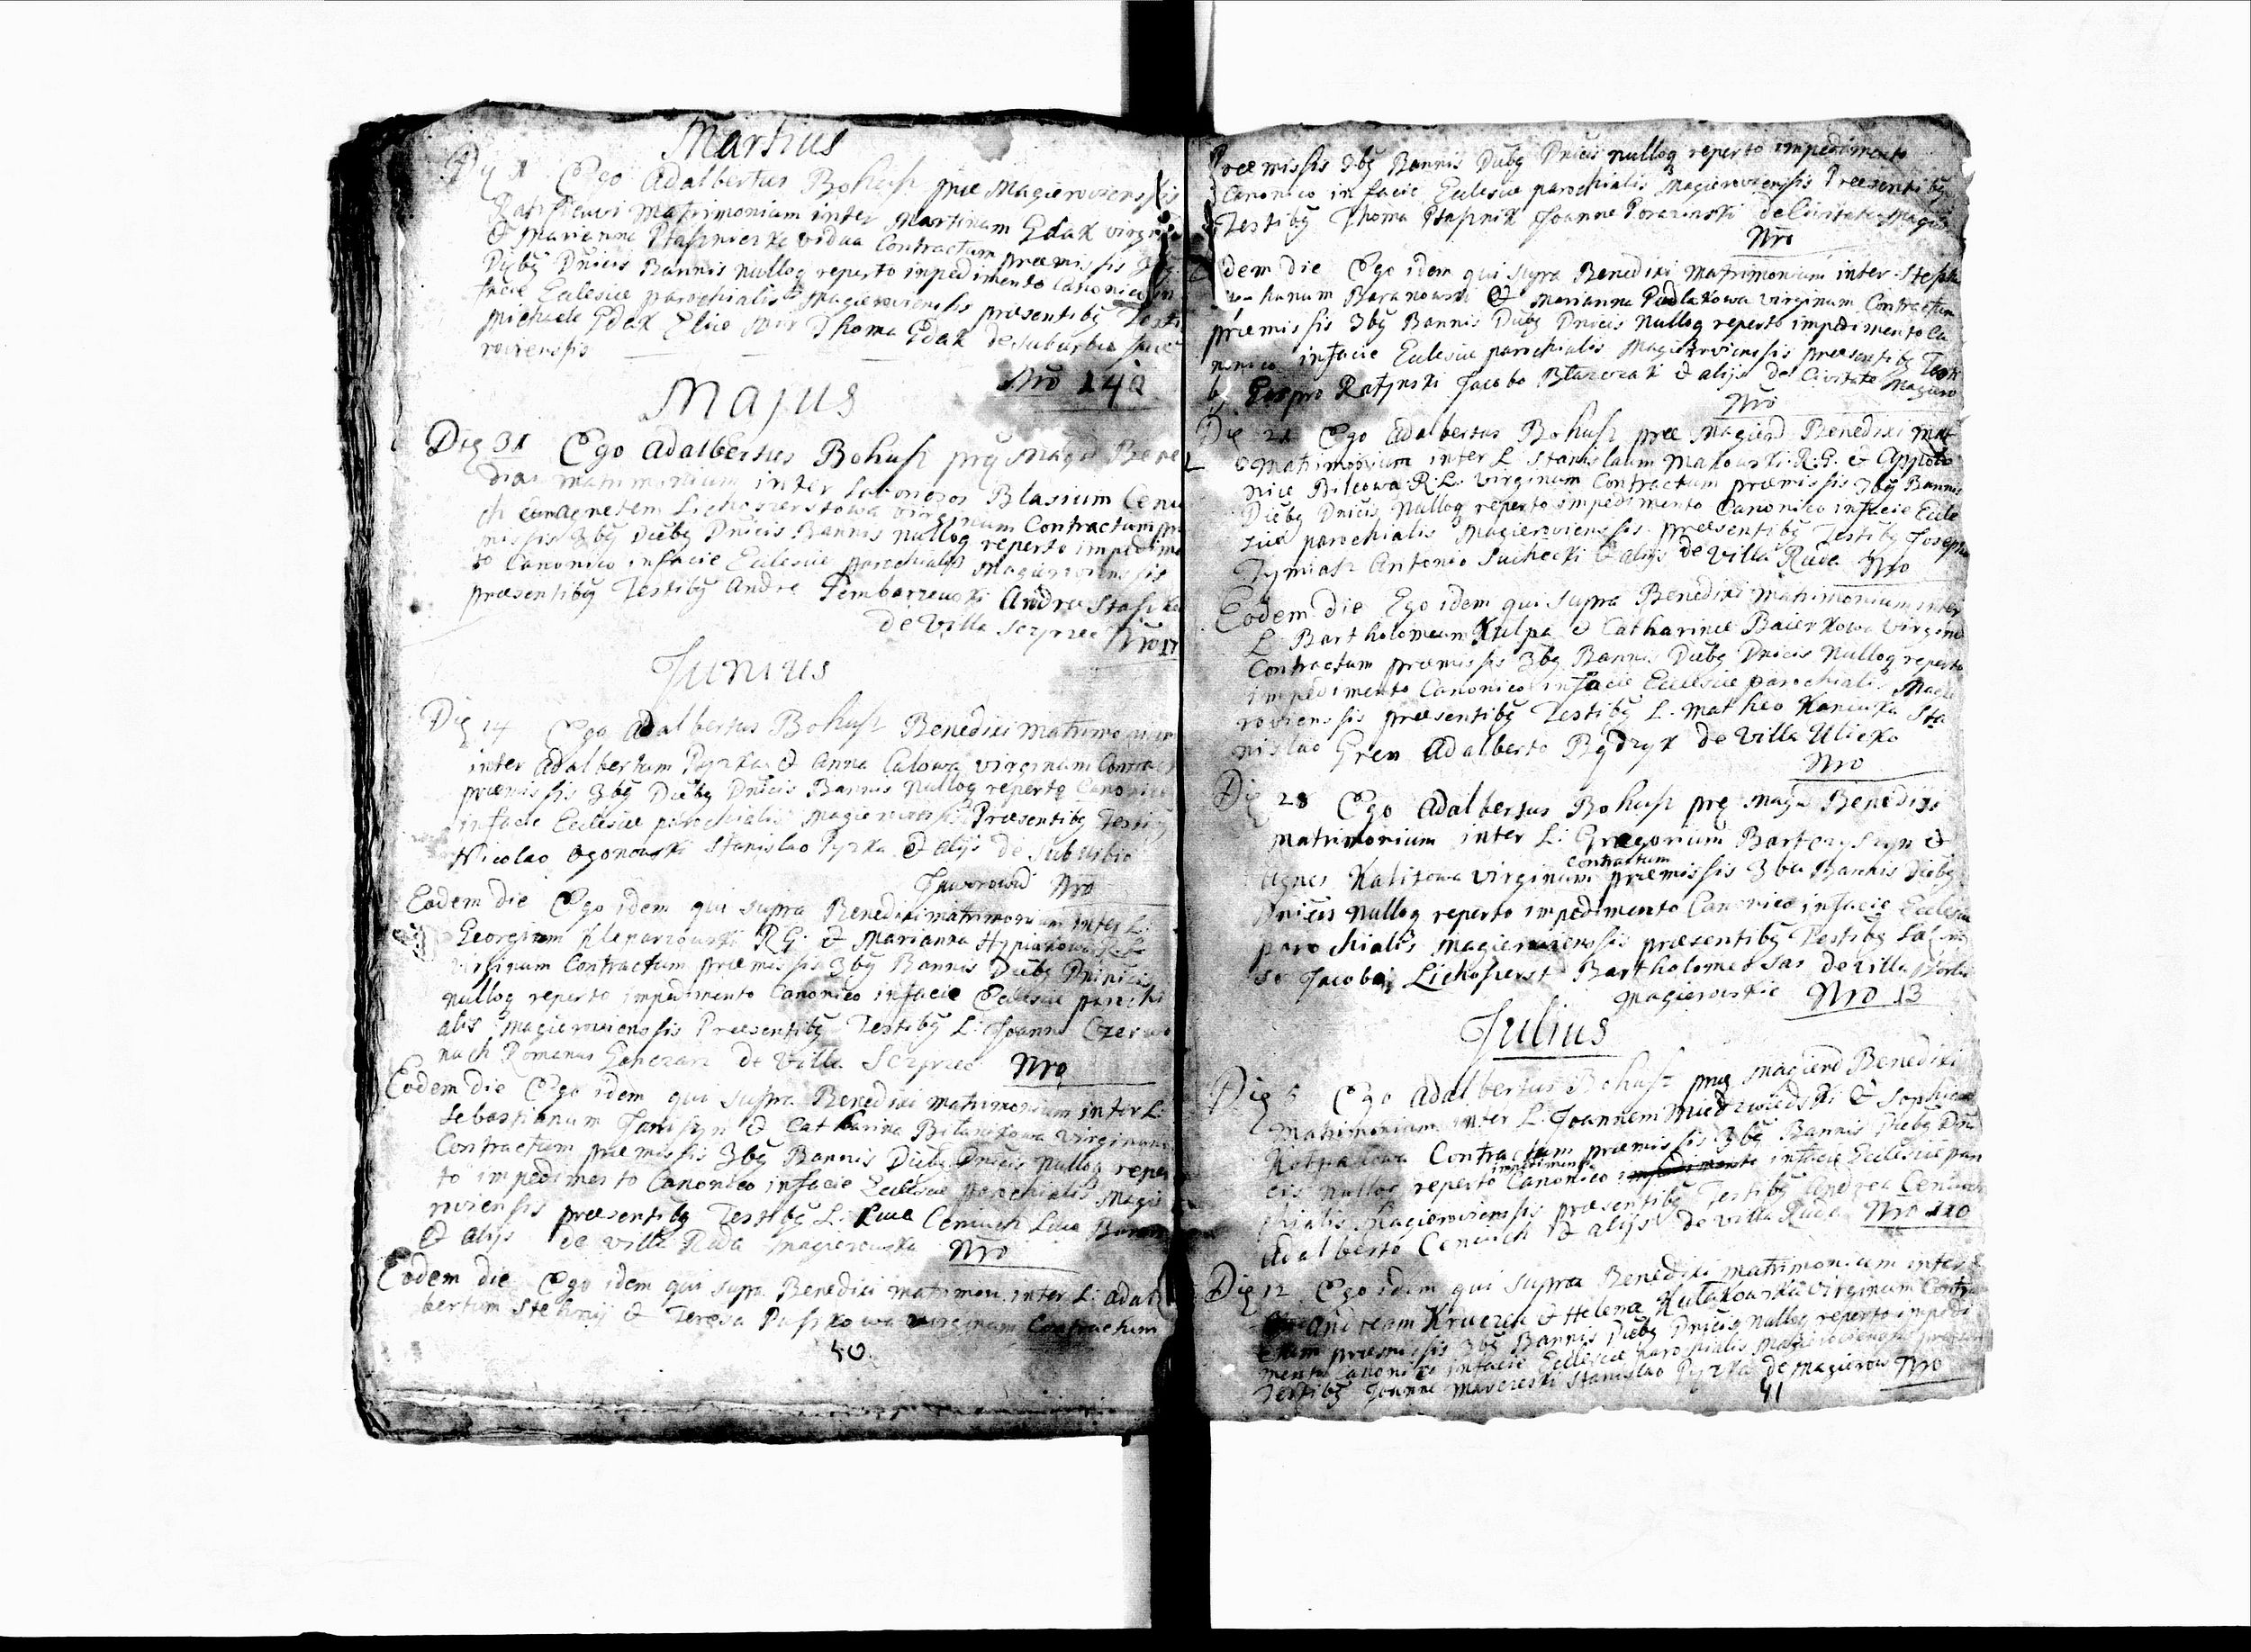 Martius
Die 1 Ego Adalbertus Bohusz præ Magieroviensis
Ratificavi Matrimonium inter Martinum Gdak virginem
& Marianna Ptasznicka vidua Contractum præmissis 3bg
Diebg Dnicis Bannis nulloq reperto impedimento Canonico in
facie Eclesiæ parochialis Magieroviensis præsentibg Testi
Michaele Gdak Elia Thoma Gdak de suburbio
roviensis
Nro 142
Majus
Die 31 Ego Adalbertus Bohusz prę Magd Bene
dixi matrimonium inter Laboriosos Blasium Ceniu
ch Agnetem Lichoszerstowa virginum Contractum præ
missis 3bg Diebg Dnicis Bannis nulloq reperto impedime
to Canonico infacie Eclesiæ parochialis Magieroviensis
præsentibg Testibg Andre Andre
de Villa Nro 17
Junius
Die 14 Ego Adalbertus Bohusz Benedixi Matrimonium
inter Adalbertum Pyzka & Anna Calowa virginum Contract
præmissis 3bg Diebg Dnicis Bannis Nulloq reperto Canonico
infacie Eclesiæ parochialis Magieroviensis Præsentibg Testibg
Nicolao Ogonowski Stanislao Pyzka & alijs de Suburbio
Nro
Eodem die Ego idem qui supra Benedixi matrimonium inter L:
Georgium Kleparzowski R G. & Marianna R L
virginum Contractum præmissis 3bg Bannis Diebg Dninicis
nulloq reperto impedimento Canonico infacie Eclesiæ parochi
alis Magieroviensis Præsentibg Testibg L: Joanne Czerwo
nach Romanus Ganczarz de Villa Nro
Eodem die Ego idem qui supra Benedixi matrimonium inter L:
Sebastianum & Catharina virginum
Contractum præmissis 3bg Bannis Diebg Dnicis nulloq reper
to impedimento Canonico infacie Eclesiæ parochialis Magie
roviensis præsentibg Testibg L: Luca Ceniuch Luca Baran
& alijs de Villa Ruda Magierowska Nro
Eodem die Ego idem qui supra Benedixi matrimon inter L: Adal
bertum Stehnij & Teresa Puszkowa virginum Contractum
40
Præmissis 3bg Bannis Diebg Dnicis nulloq reperto impedimento
Canonico in facie Eclesiæ parochialis Magieroviensis Præsentibg
Testibg Thoma Ptasznik Joanne Porazinski de Civitate Magier
Nro
Eodem die Ego idem qui supra Benedixi Matrimonium inter Steph
hanum Baranowski & Marianna Pudlakowa virginum Contractum
præmissis 3bg Bannis Diebg Dnicis nulloq reperto impedimento Ca
nonico infacie Eclesiæ parochialis Magieroviensis præsentibg Testi
bg Jacobo & alijs de Civitate Magiero
Nro
Die 21 Ego Adalbertus Bohusz præ Magierd Benedixi Mat
Matrimonium inter L Stanislaum Makowski R.G. & Appolo
niæ Bilcowa R.L. virginum Contractum præmissis 3bg Bannis
Diebg Dnicis Nulloq reperto impedimento Canonico infacie Ecle
siæ parochialis Magieroviensis præsentibg Testibg Josepho
Tymiasz Antonio Suchecki & alijs de Villa Ruda Nro
Eodem die Ego idem qui supra Benedixi matrimonium inter
L Bartholomeum Kulpa & Catharinæ Baierkowa virginū
Contractum præmissis 3bg Bannis Diebg Dnicis Nulloq reperto
impedimento Canonico infacie Eclesiæ parochialis Magie
roviensis præsentibg Testibg L. Matheo Sta
nislao Gren Adalberto Rydzyk de Villa Ulicko
Nro
Die 28 Ego Adalbertus Bohusz prę Magd Benedixi
Matrimonium inter L: Gregorium Bartczyszyn &
contractum
Agnes Kalitowa virginum præmissis 3bu Bannis Diebg
Dnicis nulloq reperto impedimento Canonico infacie Eclesiæ
parochialis Magieroviensis præsentibg Testibg
Jacobo Lichoszerst Bartholomeo Sas de villa
Magierowskie Nro 13
Julius
Die 5 Ego Adalbertus Bohusz prę Magierd Benedixi
Matrimonium inter L. Joannem Miedzwiedski & Sophiam
Kolpakowa Contractum præmissis 3bg Bannis Diebg Dni
impedimento
cis nulloq reperto Canonico infacie Eclesiæ paro
chialis Magieroviensis præsentibg Testibg Andrea Ceniuch
Adalberto Ceniuch & alijs de villa Ruda Nro 110
Die 12 Ego idem qui supra Benedixi matrimonium inter
Andream Kruczek & Helena Kulakowska virginum Contra
ctum præmissis 3bg Bannis Diebg Dnicis nulloq reperto impedi
mento Canonico infacie Eclesiæ parochialis Magieroviensis præsen
Testibg Joanne Stanislao Pyzka de Magierow Nro
41